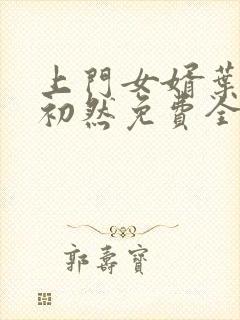 上門女婿葉
初然免費全
郭壽寶